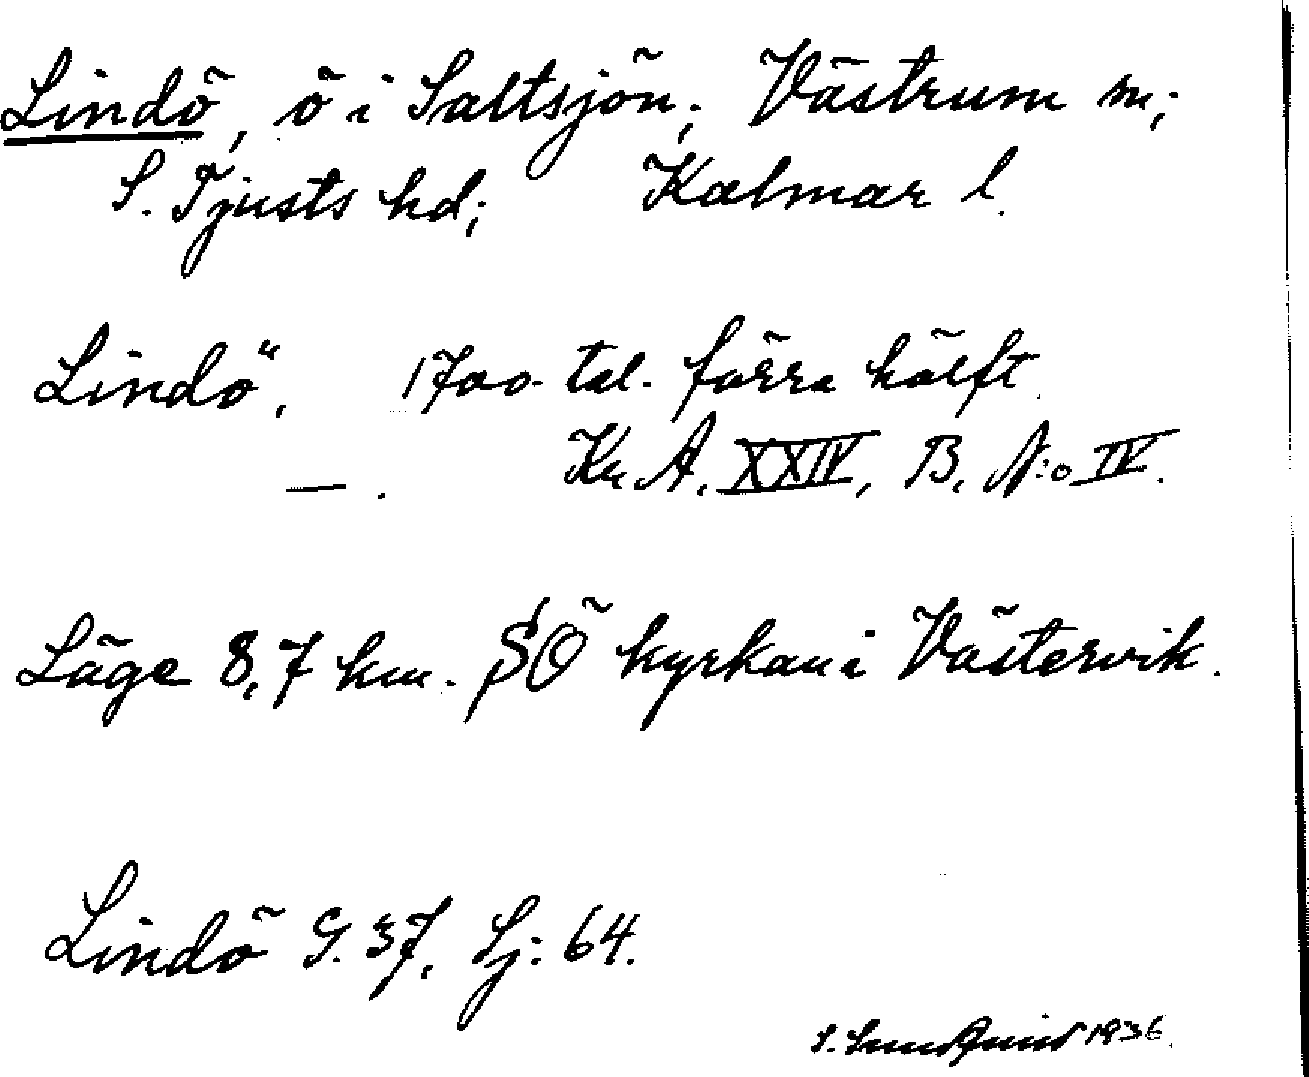 Lindö, ö i Saltsjön; Västrum sn;
S. Tjusts hd; Kalmar l.
Lindö", 1700-tal. förra hälft.
— . Kr. A. XXIV, B. N:o IV.
Läge 8,7 km. SÖ kyrkan i Västervik.
Lindö G. 37, Sj: 64.
S. Sundquist 1936.